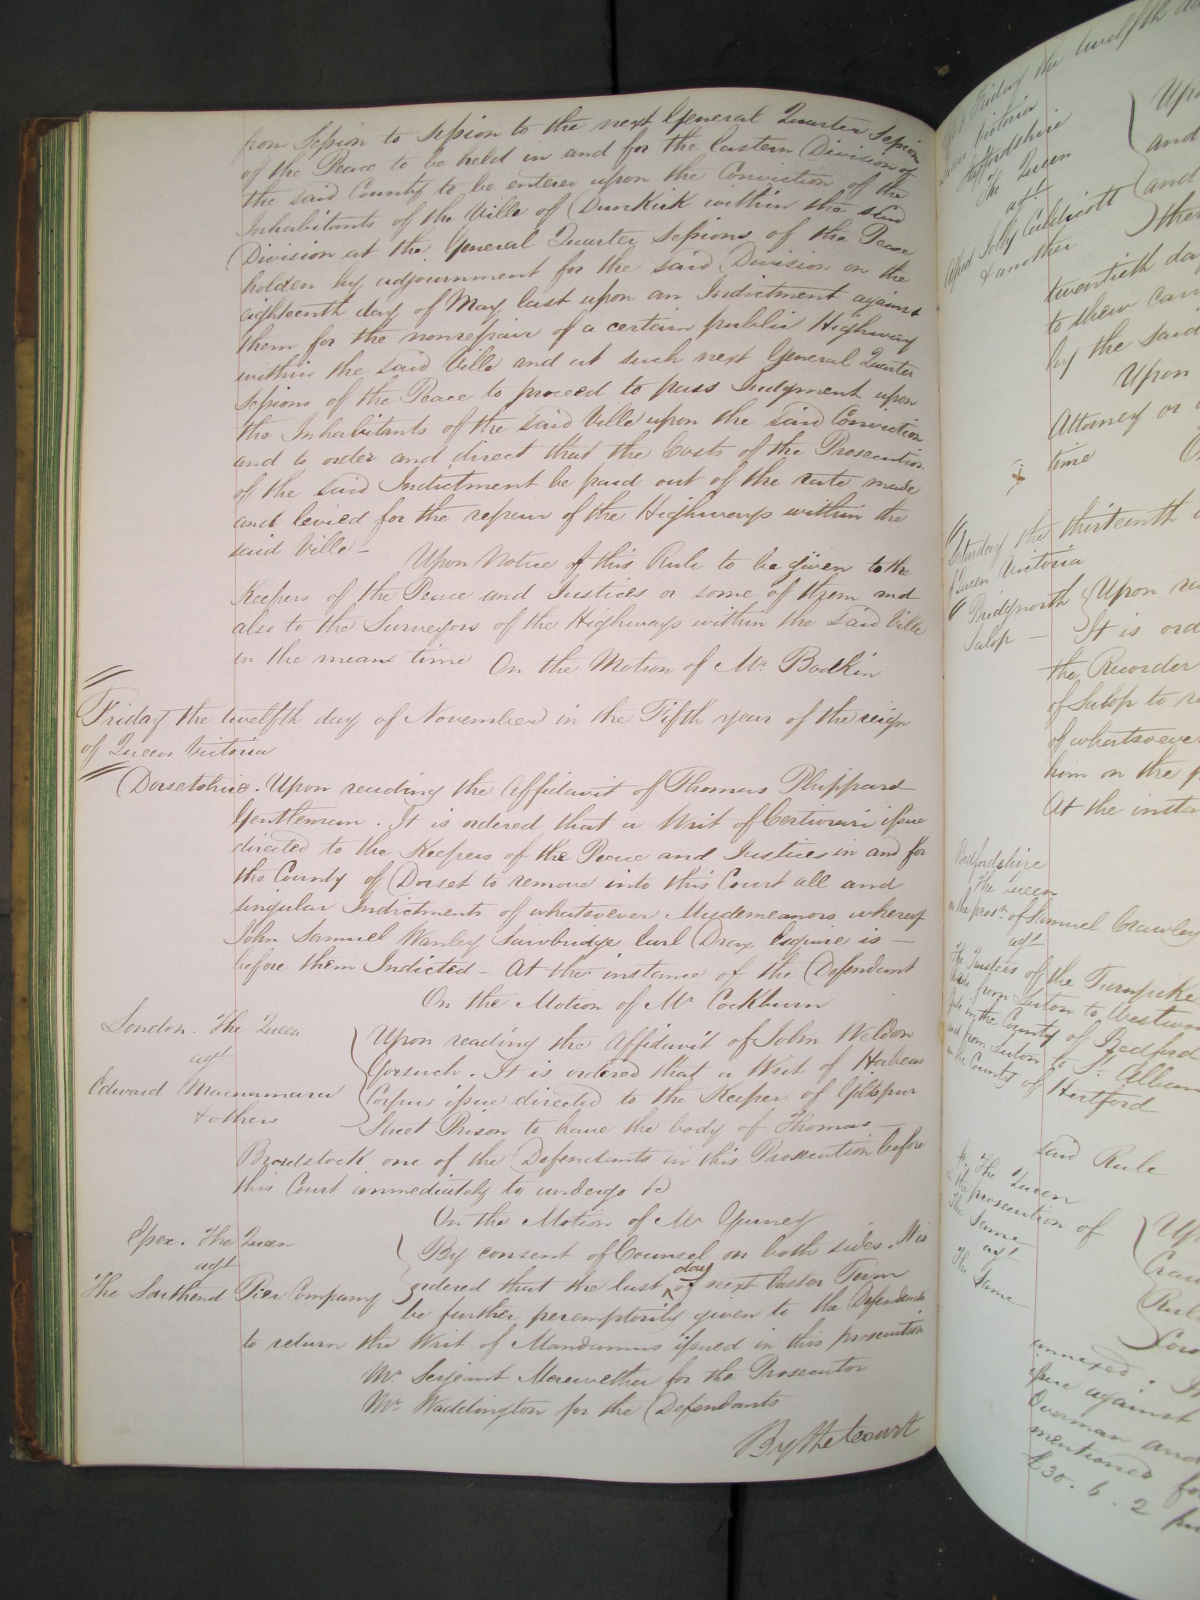 from Session to Session to the next General Quarter Session
of the Peace to be held in and for the Eastern Division of
the said County to be entered upon the Conviction of the
Inhabitants of the Ville of Dunkirk within the said
Division at the General Quarter Sessions of the Peace
holden by adjournment for the said Division on the
eighteenth day of May last upon an Indictment against
them for the nonrepair of a certain public Highway
within the said Ville and at such next General Quarter
Sessions of the Peace to proceed to pass Judgment upon
the Inhabitants of the said Ville upon the said Conviction
and to order and direct that the Costs of the Prosecution
of the said Indictment be paid out of the rate made
and levied for the repair of the Highways within the
said Ville –
Upon Notice of this Rule to be given to the
Keepers of the Peace and Justices or some of them and
also to the Surveyors of the Highways within the said Ville
in the mean time On the Motion of Mr. Bodkin
Friday the twelfth day of November in the Fifth year of the reign
of Queen Victoria
Dorsetshire. Upon reading the Affidavit of Thomas Phippard
Gentleman. It is ordered that a Writ of Certiorari issue
directed to the Keepers of the Peace and Justices in and for
the County of Dorset to remove into this Court all and
singular Indictments of whatsoever Misdemeanors whereof
John Samuel Wanley Sawbridge Earl Drax Esquire is –
before them Indicted – At the instance of the Defendant
On the Motion of Mr. Cockburn
London. The Queen
agt
Edward Macnamara
& others
Upon reading the Affidavit of John Weldon
Gorsuch. It is ordered that a Writ of Habeas
Corpus issue directed to the Keeper of Giltspur
Street Prison to have the body of Thomas –
Broadstock one of the Defendants in this Prosecution before
this Court immediately to undergo &c
On the Motion of Mr. Gurney
Essex. The Queen
agt
The Southend Pier Company
By consent of Counsel on both sides. It is
ordered that the last day of next Easter Term
be further peremptorily given to the Defendants
to return the Writ of Mandamus issued in this prosecution
Mr. Serjeant Merewether for the Prosecutor
Mr. Waddington for the Defendants
By the Court
Friday the twelfth
Queen Victoria
Staffordshire
The Queen
agt
Caldicott
& another
Upon
and
and
twentieth day
to shew cause
by the said
Upon
Attorney or
time
Saturday the thirteenth
of Queen Victoria
Bridgnorth
Salop –
Upon
It is ord
the Recorder
of Salop to
of whatsoever
him on the
At the insta
Bedfordshire
The Queen
on the prosn. of Samuel Crawley
agt
The Trustees of the Turnpike
Roads from Luton to
in the County of Bedford
and from Luton to St. Albans
in the County of Hertford
said Rule
The Queen
on the prosecution of
The Same
agt
The Same
annexed.
issue against
Overman and
mentioned
£30.6.2